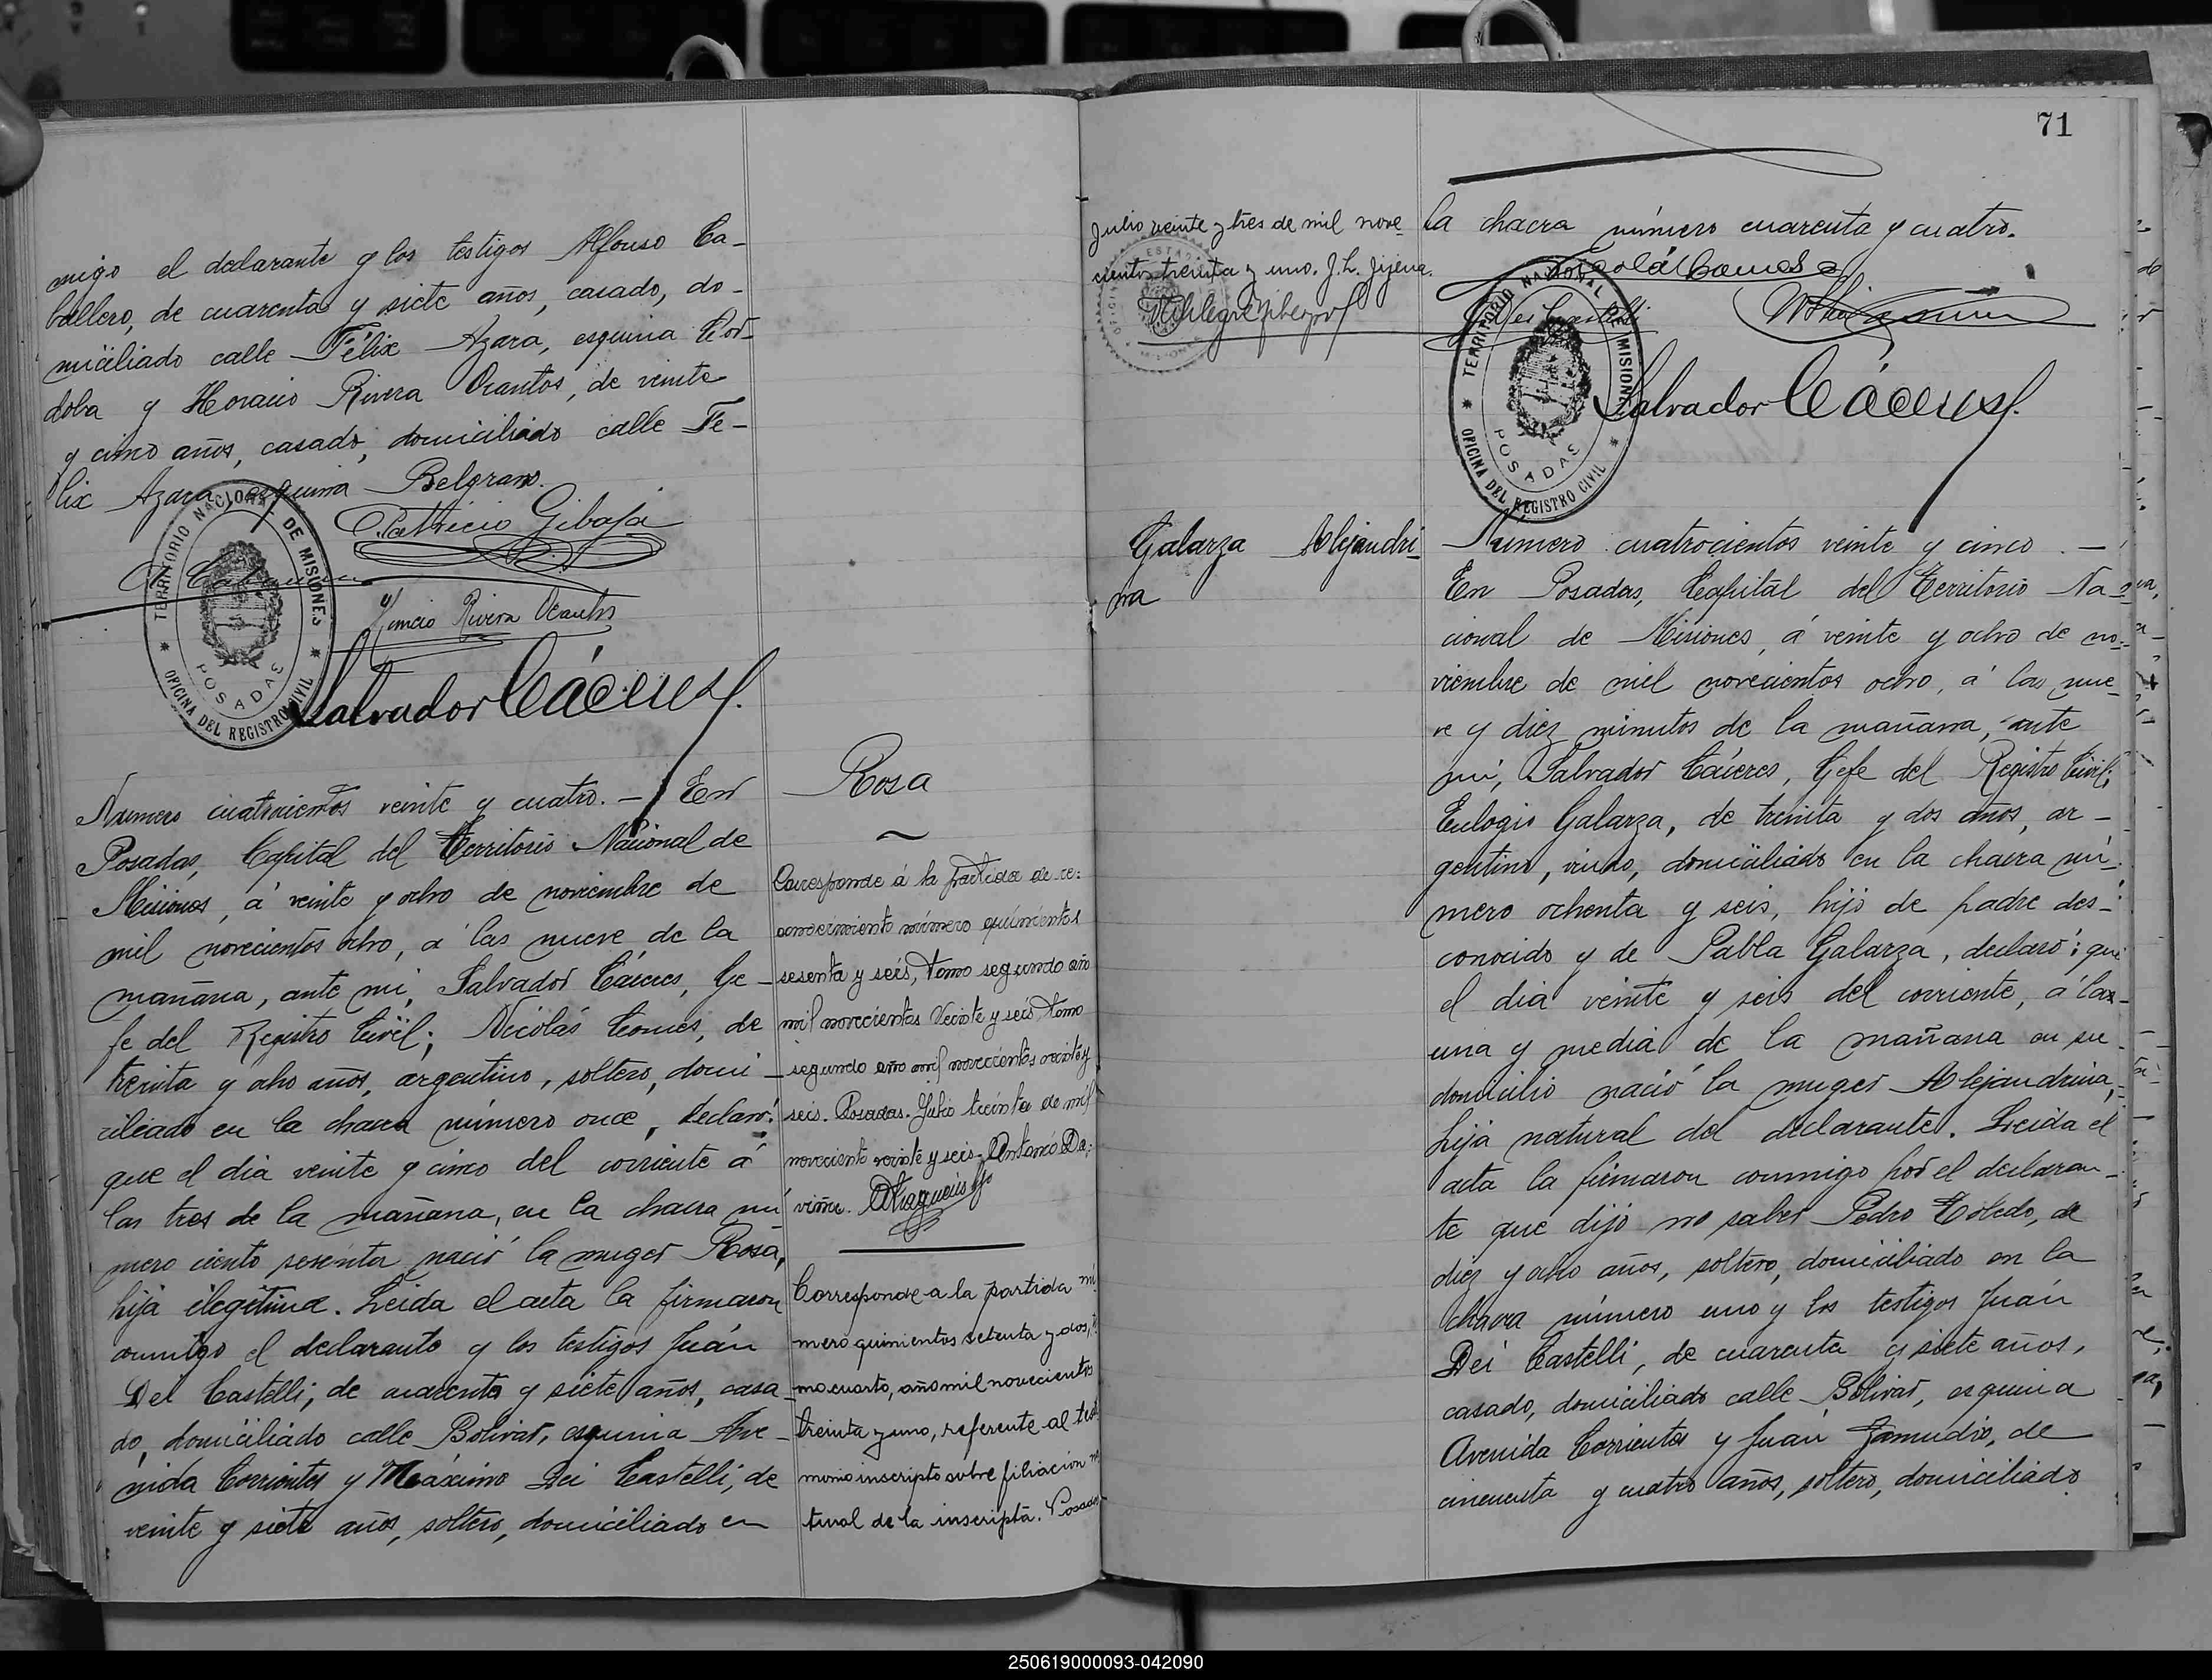 migo el declarante y los testigos Alfonso Ca-
ballero, de cuarenta y siete años, casado, do-
miciliado calle Félix Azara, esquina Cor-
doba y Horacio Rivera Ocantos, de veinte
y cinco años, casado, domiciliado calle Fe-
lix Azara esquina Belgrano.
Patricio Gibaja
Horacio Rivera Ocantos
TERRITORIO NACIONAL DE MISIONES
POSADAS
OFICINA DEL REGISTRO CIVIL
Salvador Cáceres
Numero cuatrocientos veinte y cuatro. — En
Posadas, Capital del Territorio Nacional de
Misiones, á veinte y ocho de noviembre de
mil novecientos ocho, a las nueve de la
mañana, ante mi, Salvador Cáceres, Ge-
fe del Registro Civil; Nicolás Comes, de
treinta y ocho años, argentino, soltero, domi-
ciliado en la chacra número once, declaró:
que el dia veinte y cinco del corriente á
las tres de la mañana, en la chacra nú
mero ciento sesenta nació la muger Rosa,
hija ilegítima. Leida el acta la firmaron
conmigo el declarante y los testigos Juán
Dei Castelli, de cuarenta y siete años, casa-
do, domiciliado calle Bolivar, esquina Ave-
nida Corrientes y Máximo Dei Castelli, de
veinte y siete años, soltero, domiciliado en
Rosa
Corresponde á la partida de re-
conocimiento número quinientos
sesenta y seis, tomo segundo año
mil novecientos veinte y seis, tomo
segundo año mil novecientos veinte y
seis. Posadas. Julio treinta de mil
noveciento veinte y seis. Antonio Da-
viña.
Corresponde a la partida nú
mero quinientos setenta y dos, to
mo cuarto, año mil novecientos
treinta y uno, referente al testi
monio inscripto sobre filiacion na
tural de la inscripta. Posadas
71
Julio veinte y tres de mil nove-
cientos treinta y uno. J. L. Jijena.
la chacra número cuarenta y cuatro.
Nicolás Comes
TERRITORIO NACIONAL DE MISIONES
POSADAS
OFICINA DEL REGISTRO CIVIL
Salvador Cáceres
Galarza Alejandri-
na
Número cuatrocientos veinte y cinco. —
En Posadas, Capital del Territorio Na-
cional de Misiones, á veinte y ocho de no-
viembre de mil novecientos ocho, á las nue-
ve y diez minutos de la mañana, ante
mi, Salvador Cáceres, Gefe del Registro Civil;
Eulogio Galarza, de treinta y dos años, ar-
gentino, viudo, domiciliado en la chacra nú-
mero ochenta y seis, hijo de padre des-
conocido y de Pabla Galarza, declaró: que
el dia veinte y seis del corriente, á las
una y media de la mañana en su
domicilio nació la muger Alejandrina,
hija natural del declarante. Leida el
acta la firmaron conmigo por el declaran-
te que dijo no saber Pedro Toledo, de
diez y ocho años, soltero, domiciliado en la
chacra número uno y los testigos Juán
Dei Castelli, de cuarenta y siete años,
casado, domiciliado calle Bolivar, esquina
Avenida Corrientes y Juán Zamudio, de
cincuenta y cuatro años, soltero, domiciliado
250619000093-042090